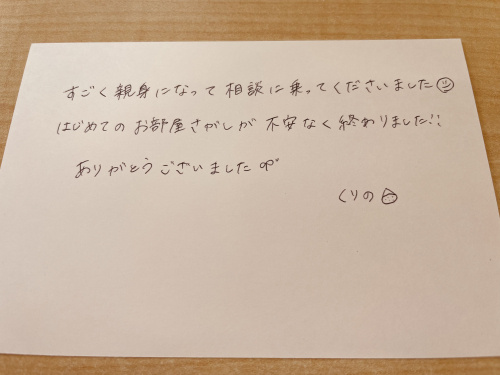 すごく親身になって相談に乗ってくださいました
はじめてのお部屋さがしが不安なく終わりました!!
ありがとうございました
くりの